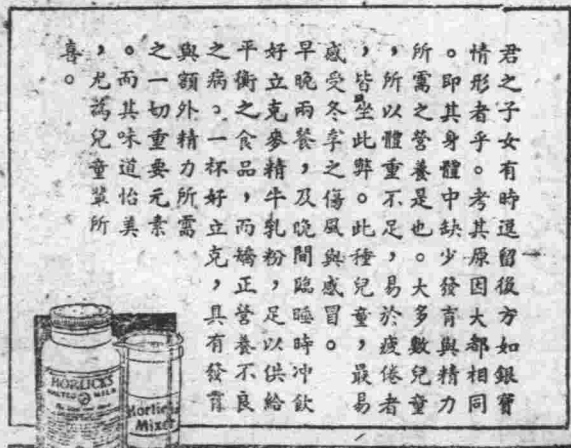 君之子女有時退留後方如銀寶
情形者乎。考其原因大都相同
。即其身體中缺少發育與精力
所需之營養是也。大多數兒童
，所以體重不足，易於疲倦者
，皆坐此弊。此種兒童，最易
感受冬季之傷風與感冒。
早晚兩餐，及晚間臨睡時冲飲
好立克麥精牛乳粉，足以供給
平衡之食品，而矯正營養不良
之病。一杯好立克，具有發育
與額外精力所需
之一切重要元素
。而其味道怡美
，尤爲兒童輩所
喜。
HORLICK'S
MALTED MILK
Horlick's
Mixer